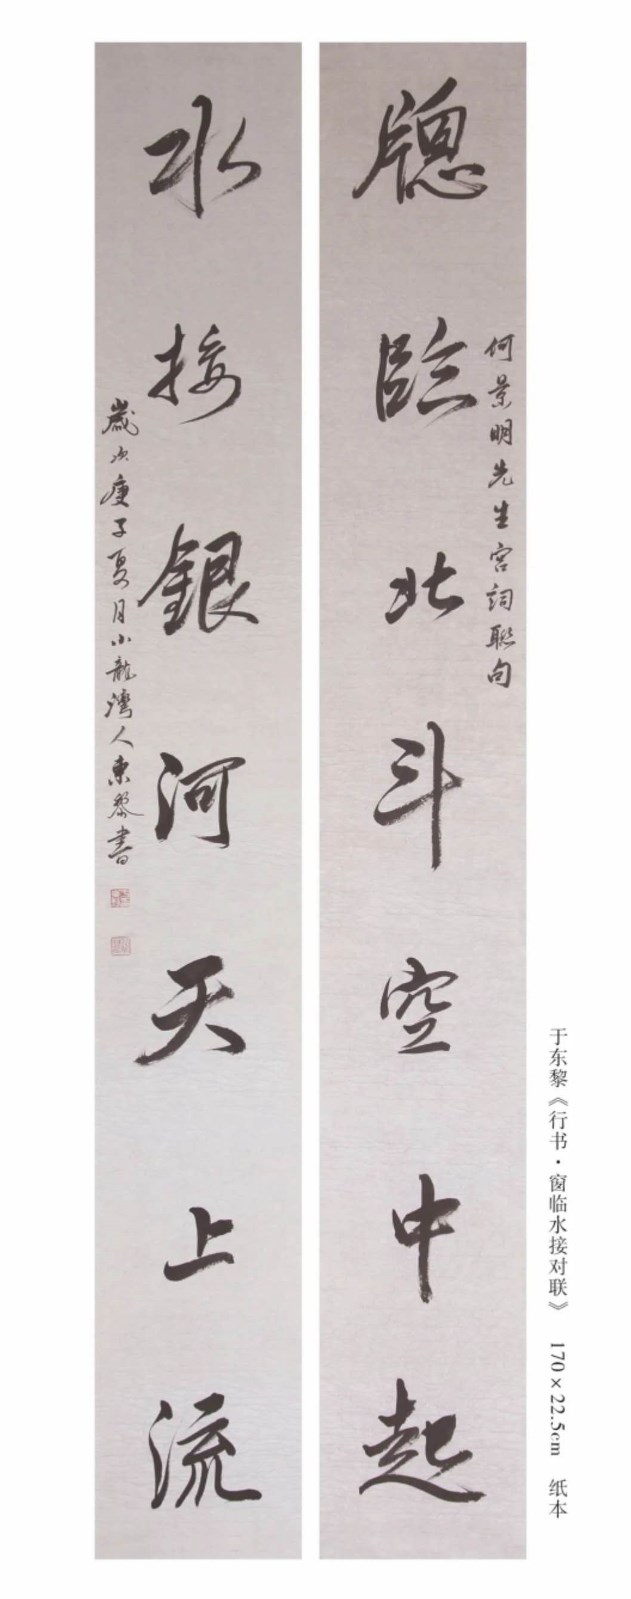 于东黎《行书·窗临水接对联》 170×22.5cm 纸本
何景明先生宫詞聯句
牕臨北斗空中起
水接銀河天上流
歲次庚子夏月小龍灣人東黎書